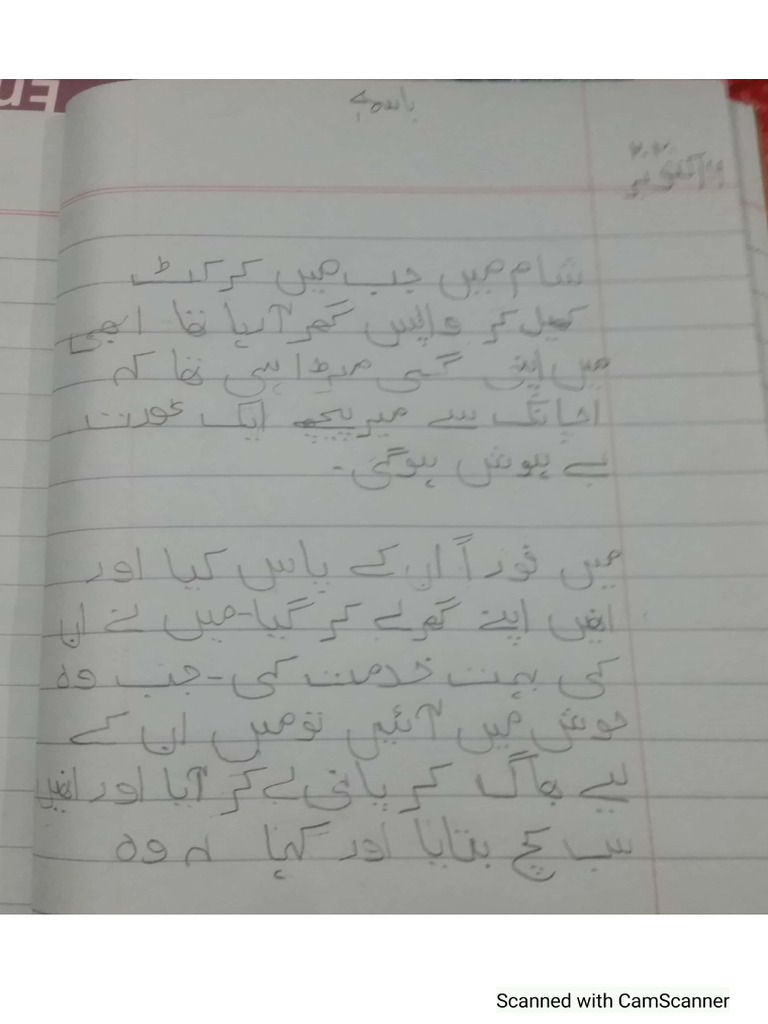 باسمہٖ
اکتوبر ۲۰۲۰
شام میں جب میں کرکٹ
کھیل کر واپس گھر آرہا تھا ابھی
میں اپنی گلی مڑا ہی تھا کہ
اچانک سے میرے پیچھے ایک عورت
بے ہوش ہوگئی۔
میں فوراً ان کے پاس گیا اور
انہیں اپنے گھر لے کر گیا۔ میں نے ان
کی بہت خدمت کی۔ جب وہ
ہوش میں آئیں تو میں ان کے
لیے بھاگ کر پانی لے کر آیا اور انہیں
سب سچ بتایا اور کہا کہ وہ
Scanned with CamScanner